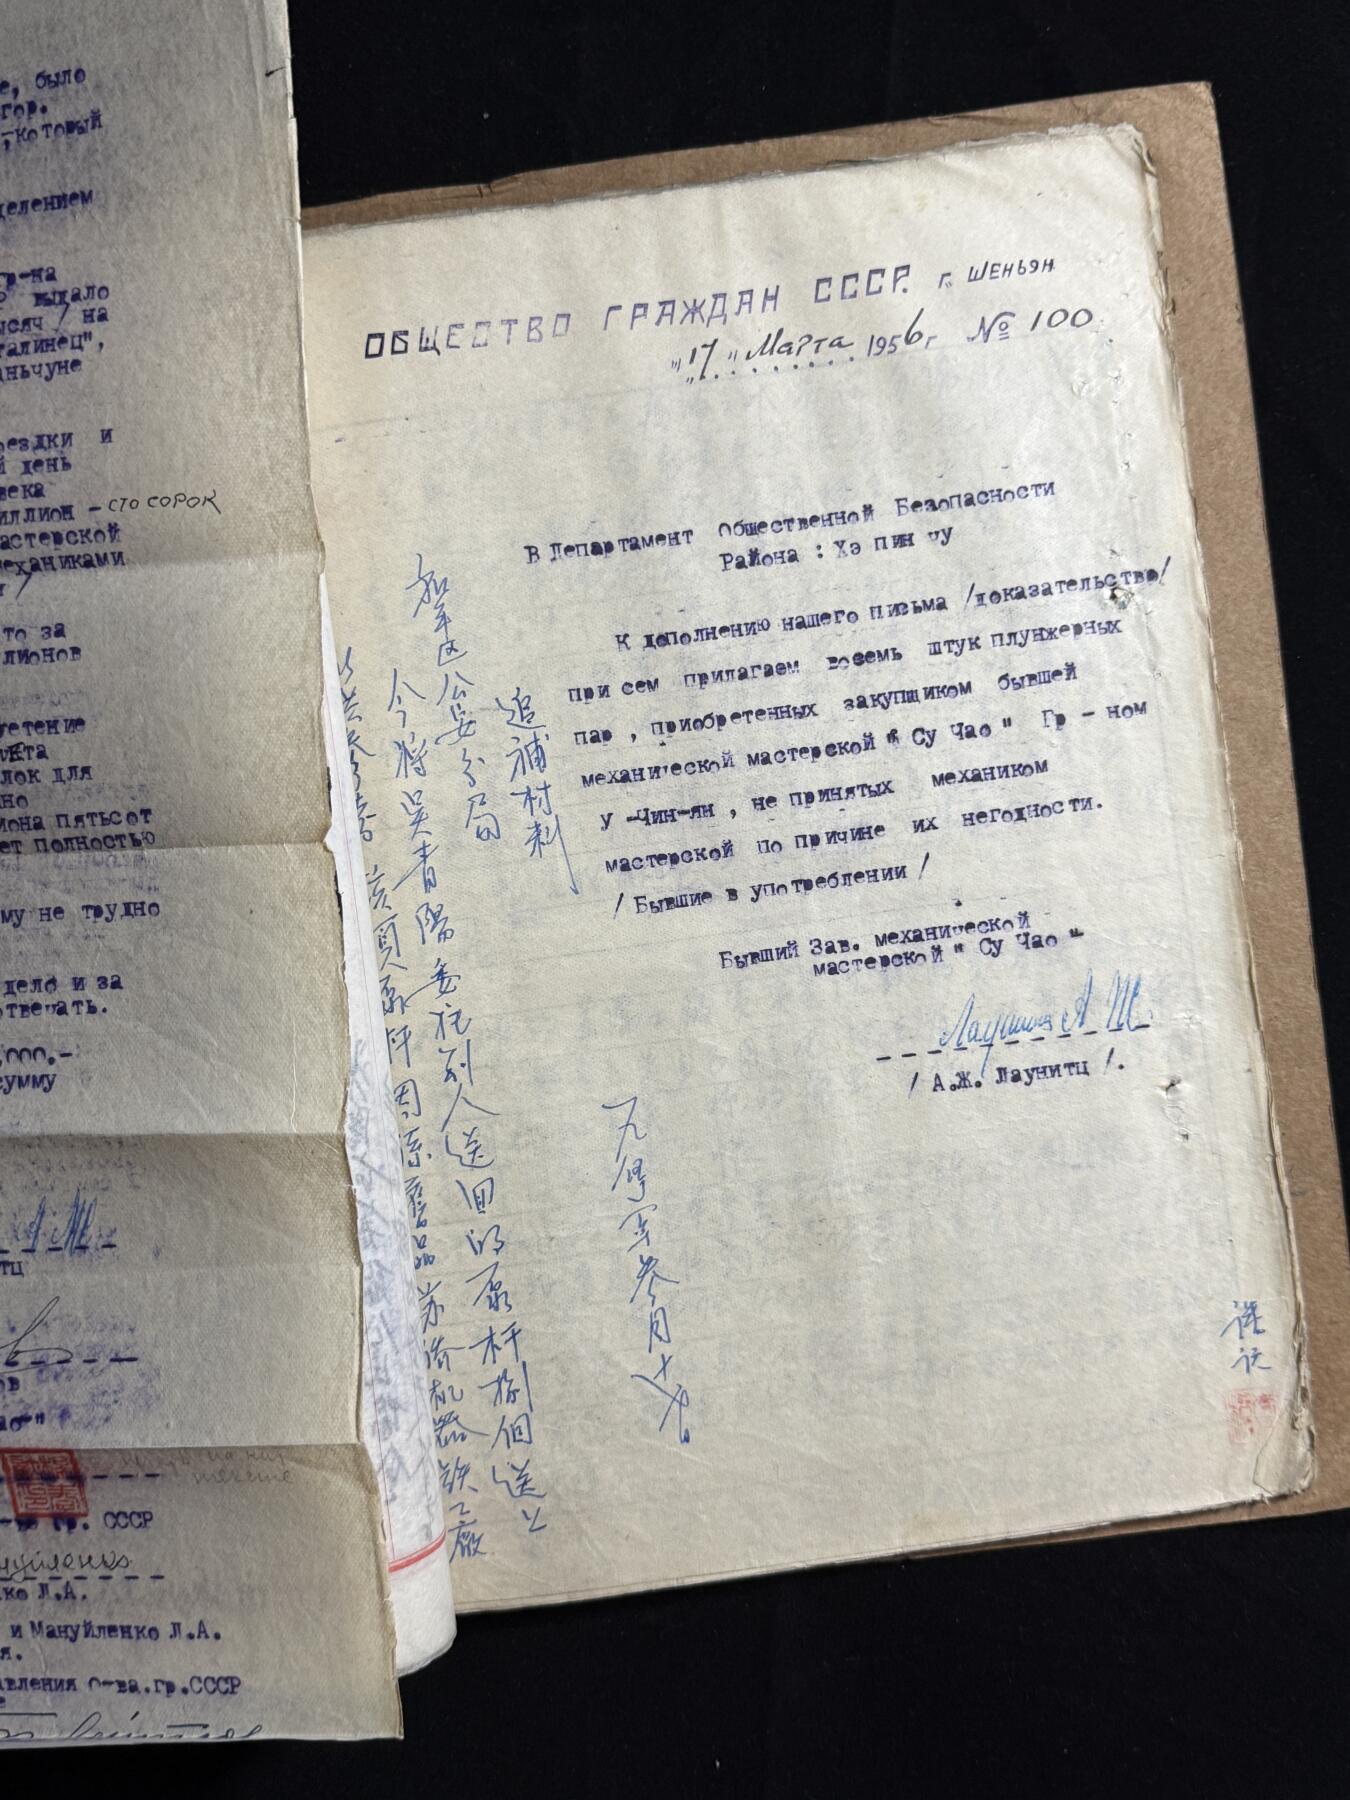 е, было
гор.
,который
делением
гр-на
выдало
ысяч / на
талинец",
аньчуне
оездки и
й день
века
иллион - сто сорок
астерской
еханиками
то за
лионов
ретение
лок для
но
иона пятьсот
ет полностью
му не трудно
дело и за
отвечать.
,000.-
сумму
А Ж
тц
ов
ао "
-ва гр. СССР
нуйленко
ко Л.А.
и Мануйленко Л.А.
я.
авления о-ва.гр.СССР
ОБЩЕСТВО ГРАЖДАН СССР. г. ШЕНЬЯН
"17" Марта 1956 г № 100
В Департамент Общественной Безопасности
Района : Хэ пин чу
К дополнению нашего письма /доказательство/
при сем прилагаем восемь штук плунжерных
пар , приобретенных закупщиком бывшей
механической мастерской " Су Чао " Гр - ном
у -Чин-ян , не принятых механиком
мастерской по причине их негодности.
/ Бывшие в употреблении /
Бывший Зав. механической
мастерской " Су Чао "
Лауниц А Ж.
/ А.Ж. Лаунитц /.
追補材料
和平区公安分局
今将吴青陽委托别人送回的泵杆捌個送上
该買泵杆因系舊品苏侨机器铁工廠
证